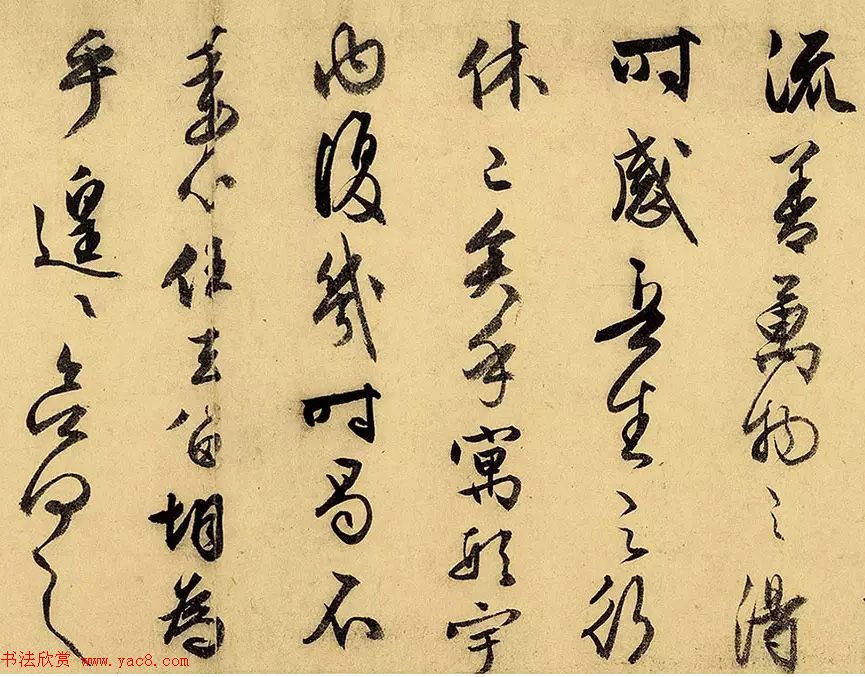 流善萬物之得
時感吾生之行
休已矣乎寓形宇
內復幾時曷不
委心任去留胡為
乎遑〻欲何之
书法欣赏 www.yac8.com